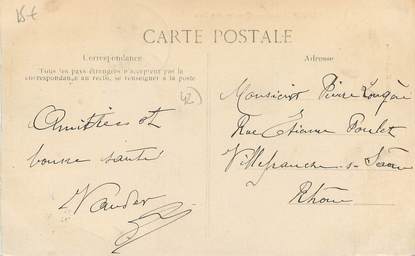 15 €
CARTE POSTALE
Correspondance
Tous les pays étrangers n'acceptent pas la
correspondance au recto, se renseigner à la poste
Adresse
42
Amitiés et
bonne santé
Monsieur Pierre
Rue Etienne Poulet
Villefranche s- Saône
Rhône